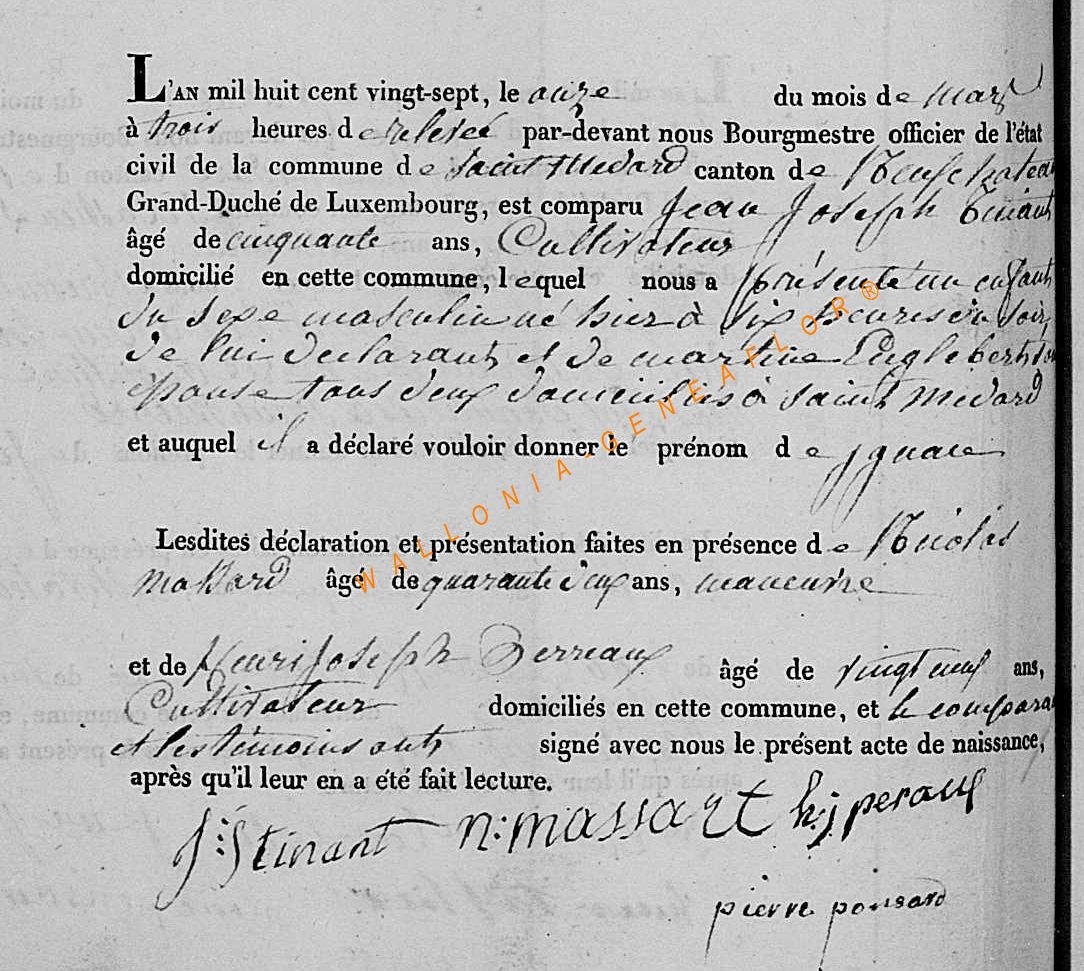 L'AN mil huit cent vingt-sept, le onze du mois de Mars
à trois heures de relevée par-devant nous Bourgmestre officier de l'état
civil de la commune de Saint Medard canton de Neufchateau
Grand-Duché de Luxembourg, est comparu Jean Joseph Tinant
âgé de cinquante ans, Cultivateur
domicilié en cette commune, lequel nous a présenté un enfant
du sexe masculin né hier à six heures du soir
de lui declarant et de martine Englebert son
épouse tous deux domiciliés à Saint Medard
et auquel il a déclaré vouloir donner le prénom de ignace
Lesdites déclaration et présentation faites en présence de Nicolas
Massard âgé de quarante deux ans, maneuvre
et de Henri Joseph Perreaux âgé de vingt neuf ans,
Cultivateur domiciliés en cette commune, et le comparant
et les témoins ont signé avec nous le présent acte de naissance,
après qu'il leur en a été fait lecture.
J:J tinant n:massart h:j peraux
pierre ponsard
WALLONIA-GENEAFLOR®